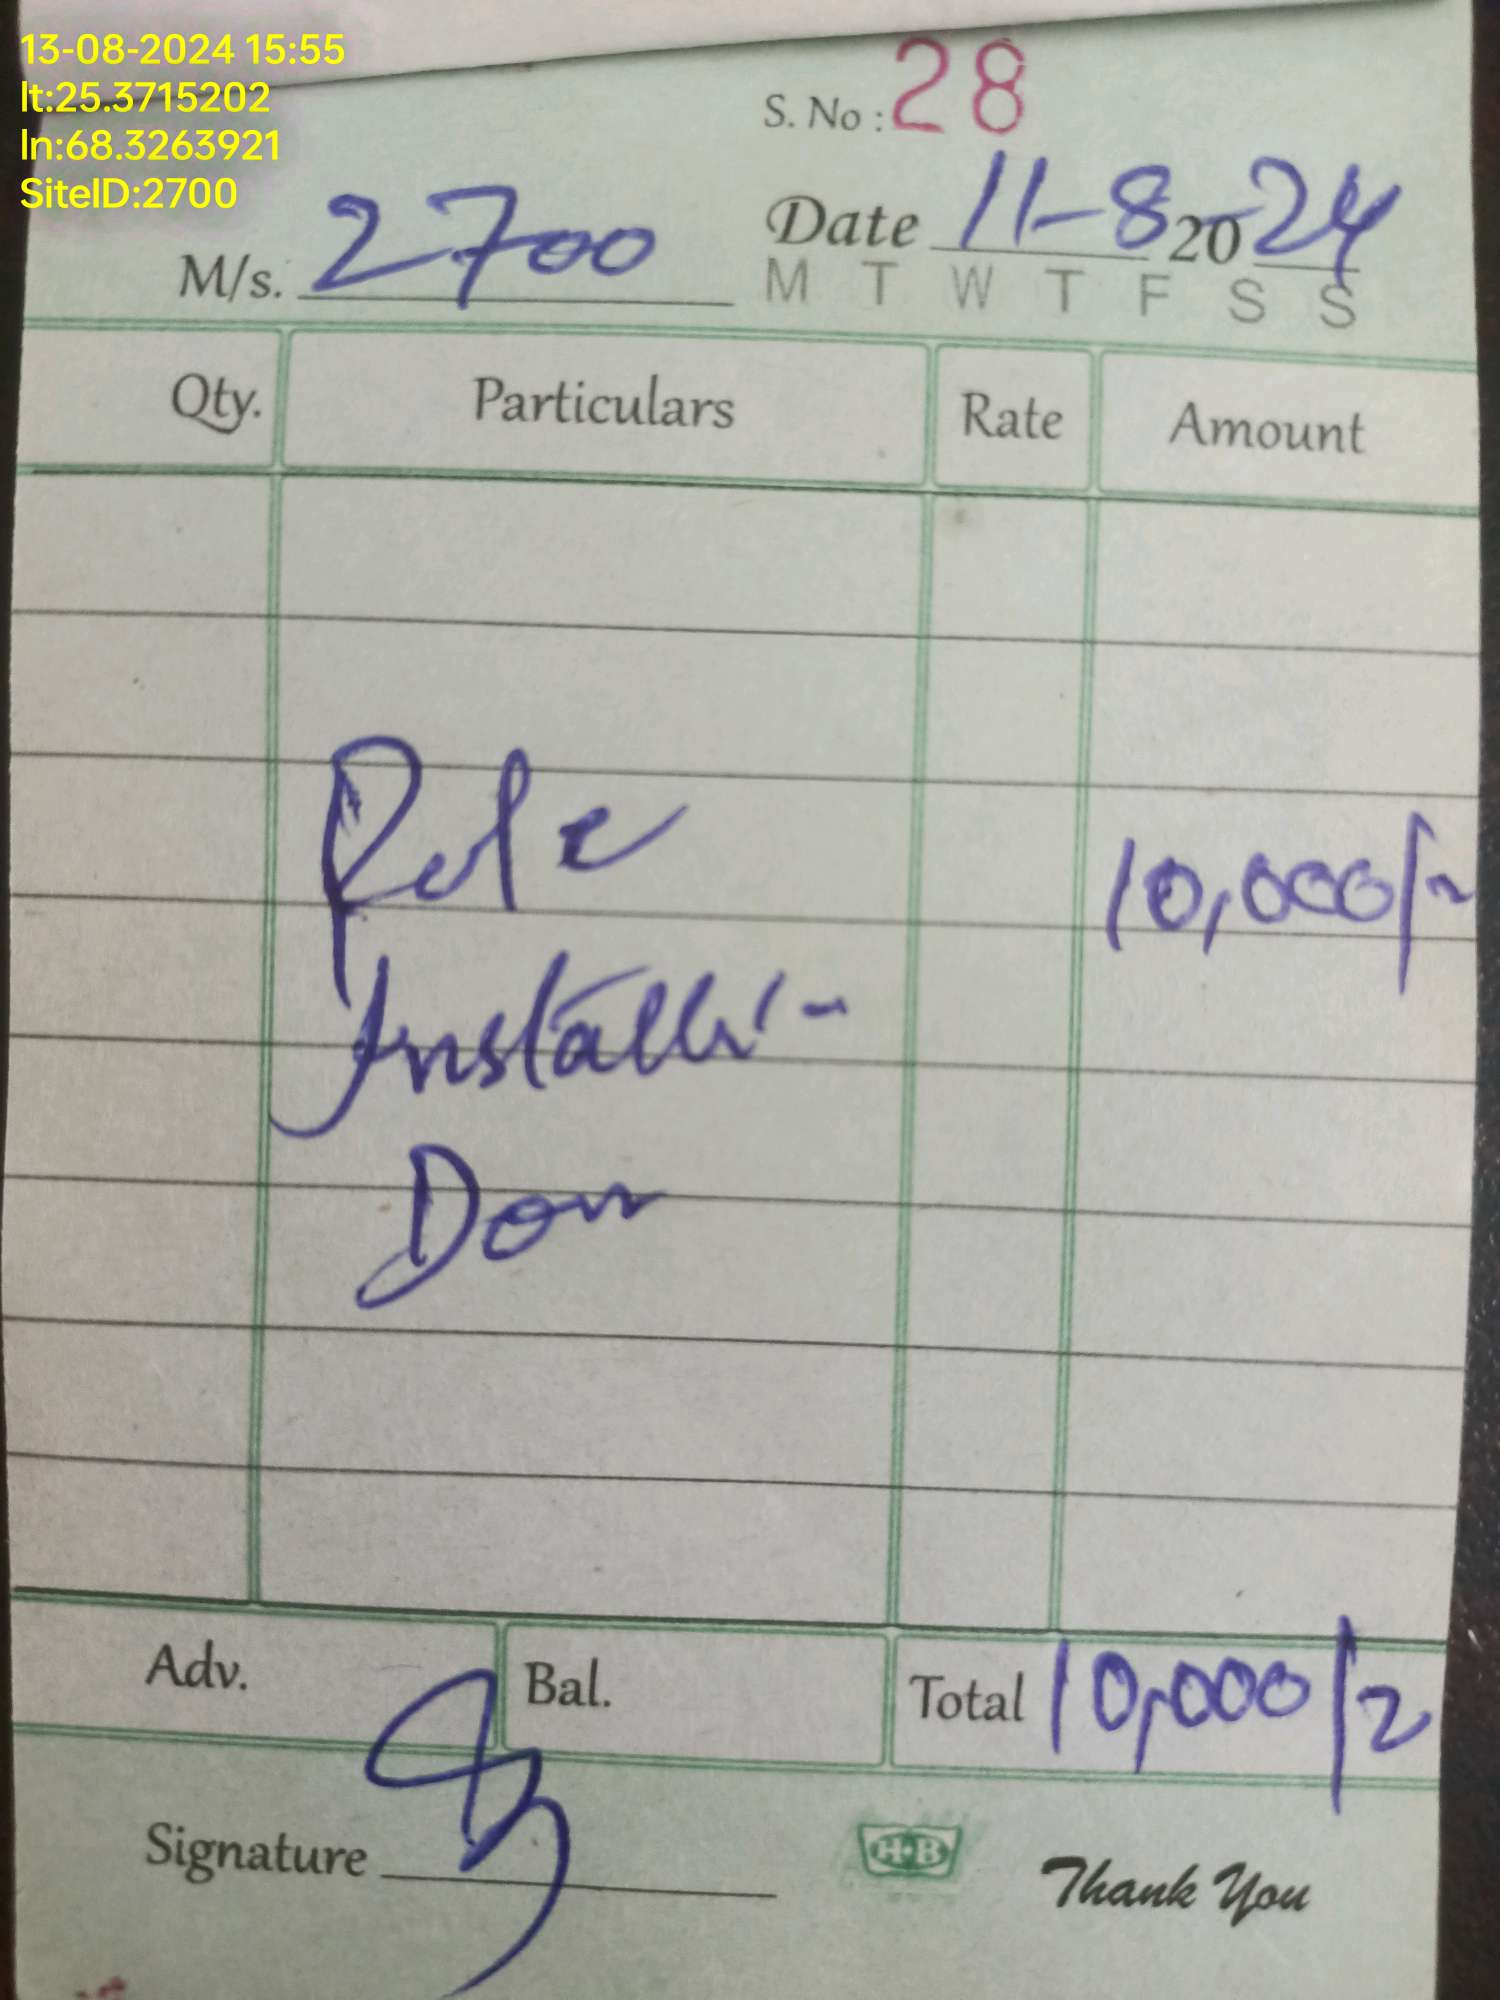 13-08-2024 15:55
lt:25.3715202
ln:68.3263921
SiteID:2700
S. No : 28
M/s. 2700
Date 11-8 2024
M T W T F S S
Qty. Particulars Rate Amount
Pole 10,000/-
Install
Don
Adv. Bal. Total 10,000/2
Signature
H·B
Thank You